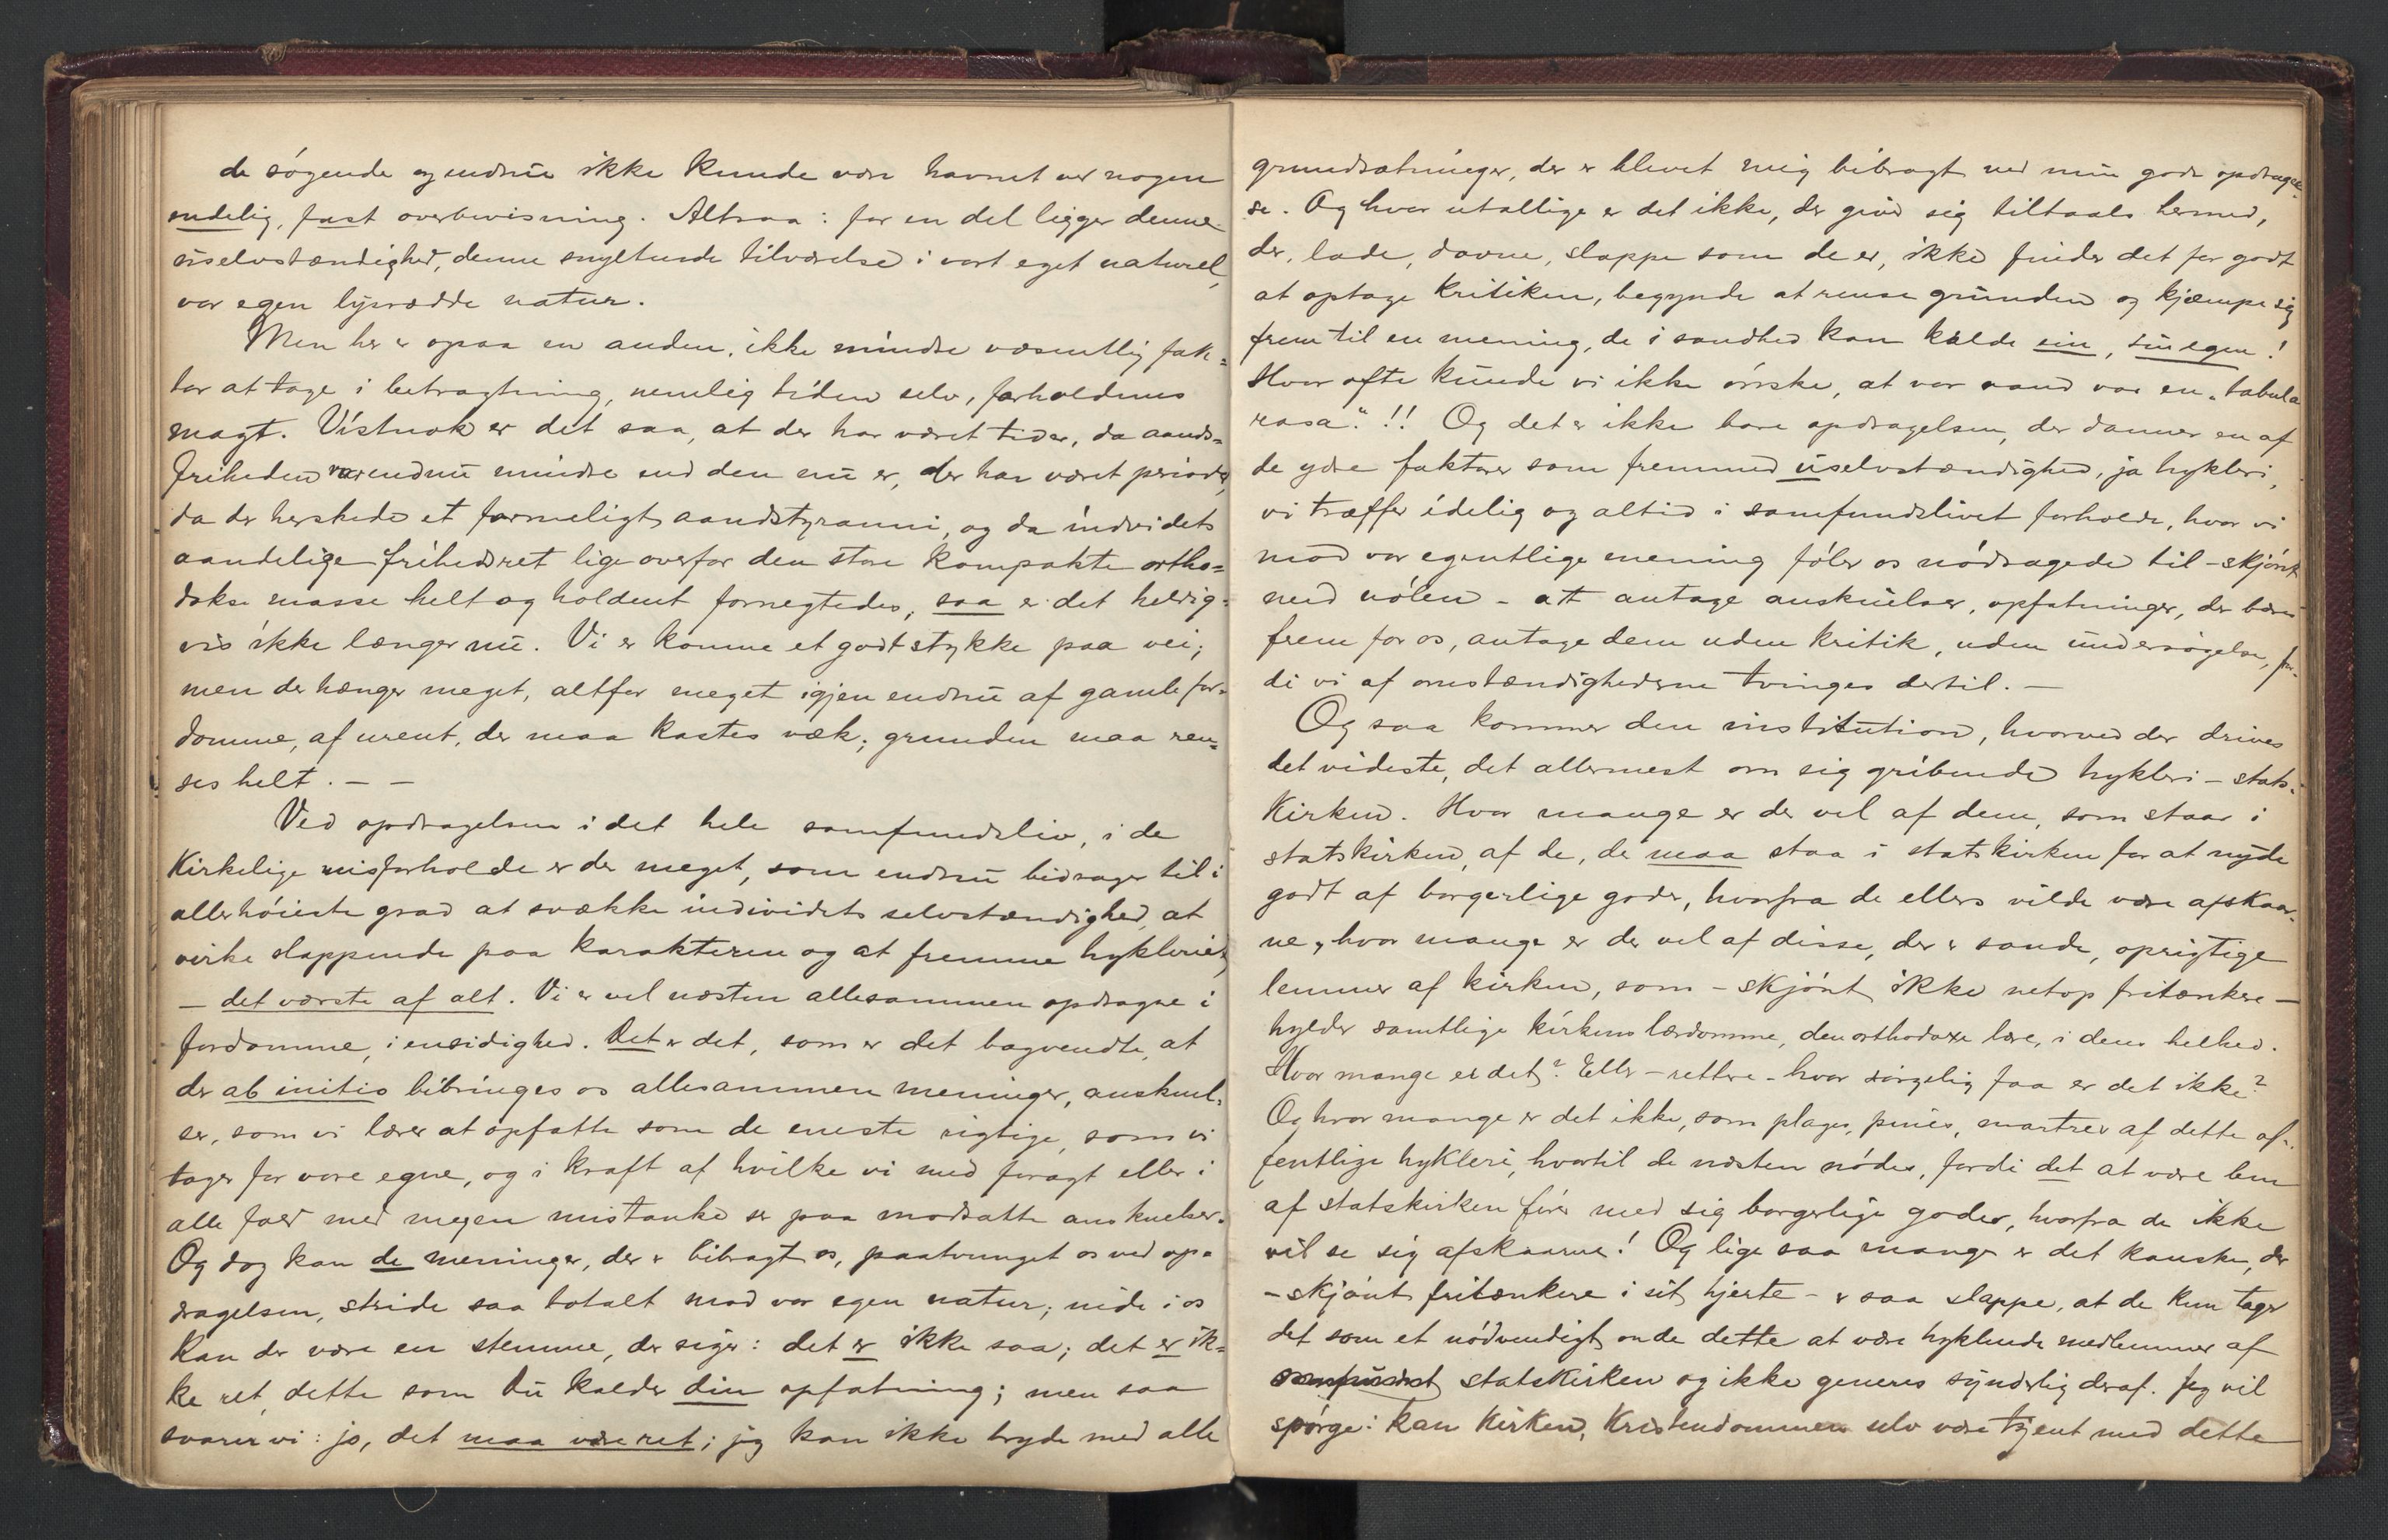 de søgende og endnu ikke kunde være havnet ved nogen
endelig, fast overbevisning. Altsaa: for en del ligger denne
uselvstændighed, denne snyltende tilværelse i vort eget naturel,
vor egen lysrædde natur.
Men her er ogsaa en anden, ikke mindre væsentlig fak-
tor at tage i betragtning, nemlig tiden selv, forholdenes
magt. Vistnok er det saa, at der har været tider, da aands-
friheden var endnu mindre end den nu er, der har været perioder,
da der herskede et formeligt aandstyranni, og da individets
aandelige frihedsret lige overfor den store kompakte ortho-
dokse masse helt og holdent fornegtedes, saa er det heldig-
vis ikke længer nu. Vi er komne et godt stykke paa vei;
men der hænger meget, altfor meget igjen endnu af gamle for-
domme, af urent, der maa kastes væk; grunden maa ren-
ses helt. — —
Ved opdragelsen i det hele samfundsliv, i de
kirkelige misforholde er der meget, som endnu bidrager til i
allerhøieste grad at svække individets selvstændighed, at
virke slappende paa karakteren og at fremme hykleriet,
— det værste af alt. Vi er vel næsten allesammen opdragne i
fordomme, i ensidighed. Det er det, som er det bagvendte, at
der ab initio bibringes os allesammen meninger, anskuel-
ser, som vi lærer at opfatte som de eneste rigtige, som vi
tager for vore egne, og i kraft af hvilke vi med foragt eller i
alle fald med megen mistanke ser paa modsatte anskuelser.
Og dog kan de meninger, der er bibragt os, paatvunget os ved op-
dragelsen, stride saa totalt mod vor egen natur; inde i os
kan der være en stemme, der siger: det er ikke saa; det er ik-
ke ret, dette som du kalder din opfatning; men saa
svarer vi: jo, det maa være ret; jeg kan ikke bryde med alle
grundsætninger, der er blevet mig bibragt ved min gode opdragel-
se. Og hvor utallige er det ikke, der giver sig tiltaals hermed,
der, lade, dovne, slappe som de er, ikke finder det for godt
at optage kritiken, begynde at rense grunden og kjæmpe sig
frem til en mening, de i sandhed kan kalde sin, sin egen!
Hvor ofte kunde vi ikke ønske, at vor aand var en "tabula
rasa"!! Og det er ikke bare opdragelsen, der danner en af
de ydre faktorer som fremmed uselvstændighed, ja hykleri,
vi træffer idelig og altid i samfundslivet forholde, hvor vi
mod vor egentlige mening føler os nødsagede til – skjønt
med nølen – att antage anskuelser, opfatninger, der bæres
frem for os, antage dem uden kritik, uden undersøgelse, for-
di vi af omstændighederne tvinges dertil. —
Og saa kommer den institution, hvorved der drives
det videste, det allermest om sig gribende hykleri – stats-
kirken. Hvor mange er der vel af dem, som staar i
statskirken, af de, der maa staa i statskirken for at nyde
godt af borgerlige goder, hvorfra de ellers vilde være afskaar-
ne, hvor mange er der vel af disse, der er sande, oprigtige
lemmer af kirken, som – skjønt ikke netop fritænkere –
hylder samtlige kirkens lærdomme, den orthodoxe lære, i dens helhed.
Hvor mange er det? Eller – rettere – hvor sørgelig faa er det ikke?
Og hvor mange er det ikke, som plages, pines, martres af dette of-
fentlige hykleri, hvortil de næsten nødes, fordi det at være lem
af statskirken fører med sig borgerlige goder, hvorfra de ikke
vil se sig afskaarne! Og lige saa mange er det kanske, der
– skjønt fritænkere i sit hjerte – er saa slappe, at de kun tager
det som et nødvendigt onde dette at være hyklende medlemmer af
samfundet statskirken og ikke generes synderlig deraf. Jeg vil
spørge: kan kirken, kristendommen selv være tjent med dette